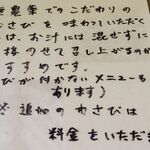 農業でのこだわりの
わさびを味わっていただく
は、お汁に混ぜずに
接のせて召し上がるのが
すすめです。
びが付かないメニューも
あります）
追加のわさびは
料金をいただき